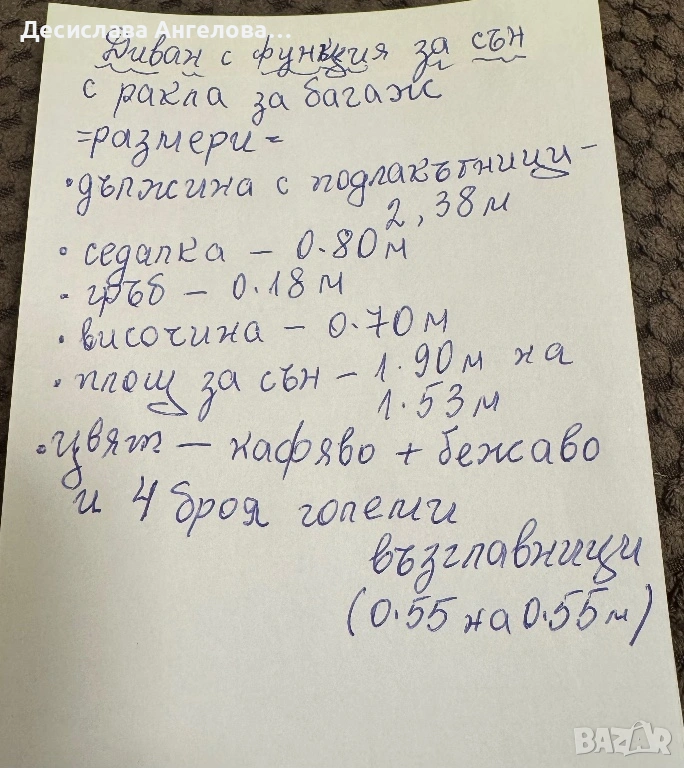 Десислава Ангелова...
Диван с функция за сън
с ракла за багаж
=размери=
• дължина с подлакътници -
2,38м
• седалка - 0.80м
• гръб - 0.18м
• височина - 0.70м
• площ за сън - 1.90м на
1.53м
• цвят - кафяво + бежаво
и 4 броя големи
възглавници
(0.55 на 0.55м)
BAZAR